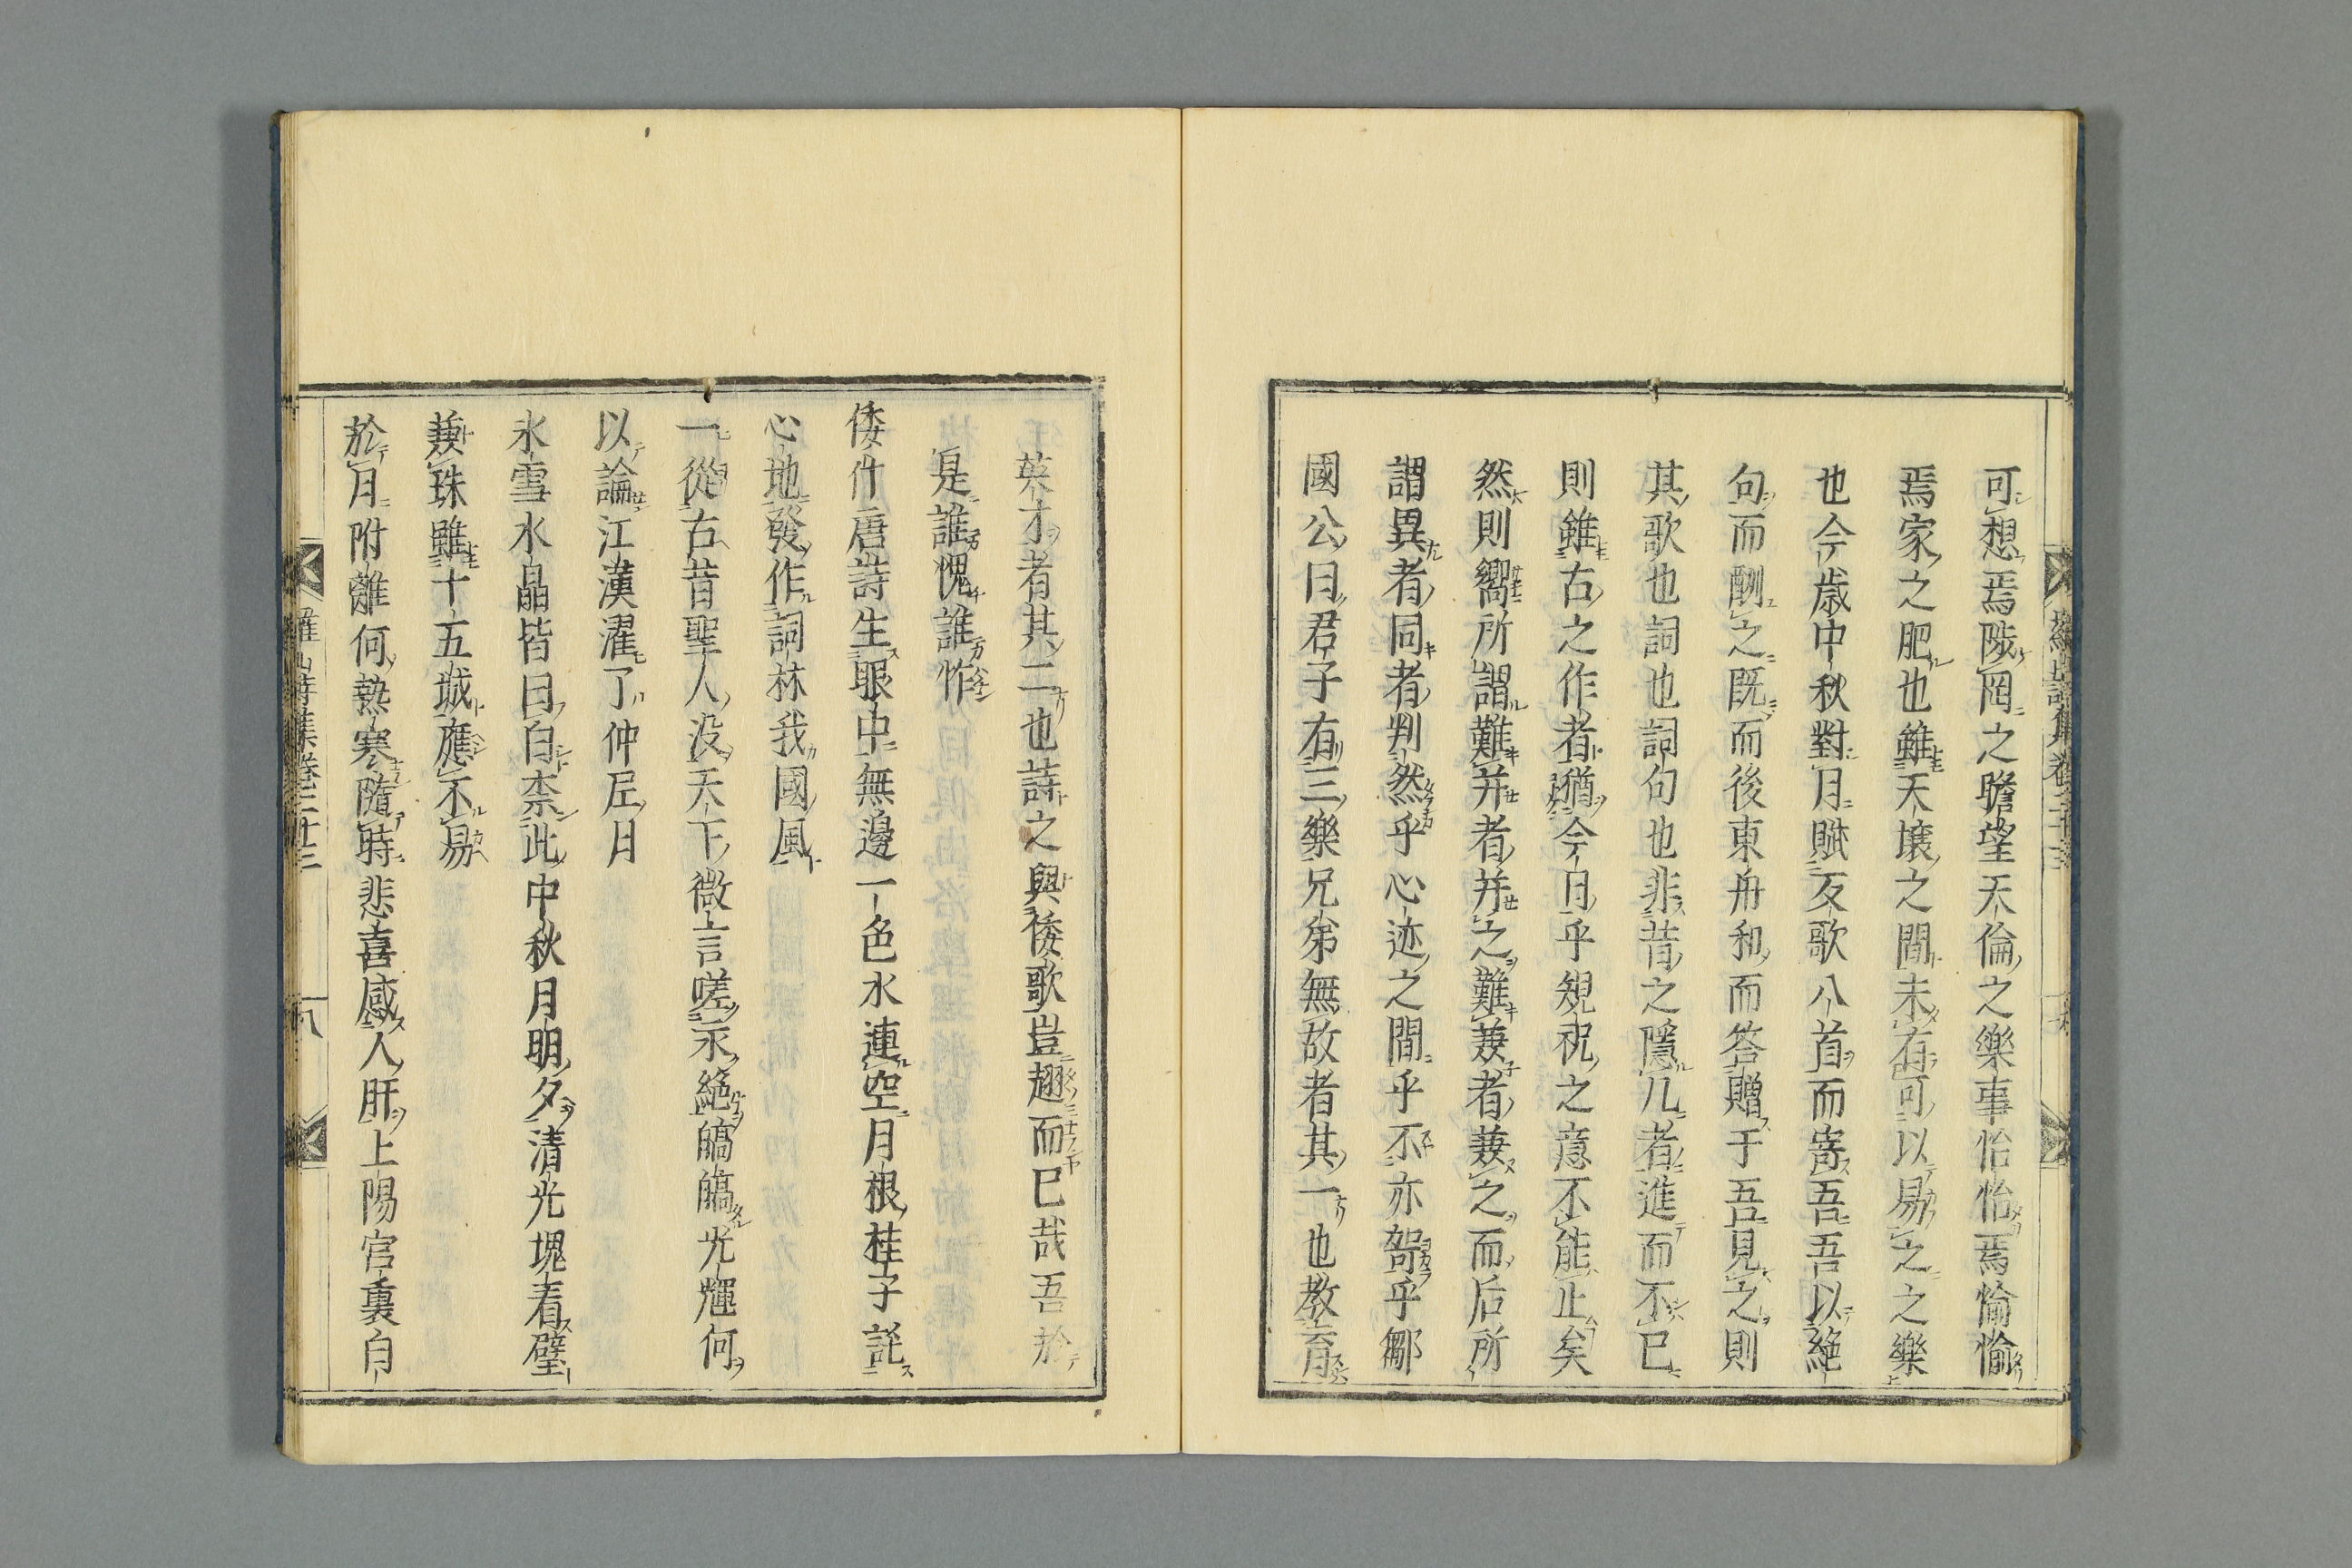 可想焉陟罔之瞻望天倫之樂事怡怡焉愉愉
焉家之肥也雖天壤之間未有可以易之之樂
也今歳中秋對月賦反歌八首而寄吾吾以絶
句而酬之既而後東舟和而答贈于吾見之則
其歌也詞也詞句也非昔之隱几者進而不已
則雖古之作者猶今日乎規祝之意不能止矣
然則嚮所謂難并者并之難兼者兼之而后所
謂異者同者判然乎心迹之間乎不亦智乎鄒
國公曰君子有三樂兄弟無故者其一也教育
英才者其二也詩之與倭歌豈翅而已哉吾於
是誰愧誰怍
倭什唐詩生眼中無邊一色水連空月根桂子託
心地發作詞林我國風
一從古昔聖人没天下微言嗟永絶皜皜光輝何
以論江漢濯了仲尼日
氷雪水晶皆曰白柰此中秋月明夕清光塊看璧
兼珠雖十五城應不易
於月附離何熱寒隨時悲喜感人肝上陽宮裏自
羅山詩集卷三十三
八